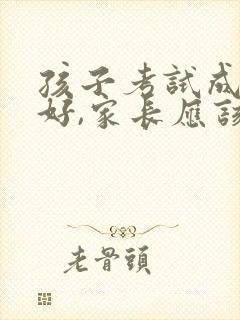 孩子考試成
好,家長應該
老骨頭